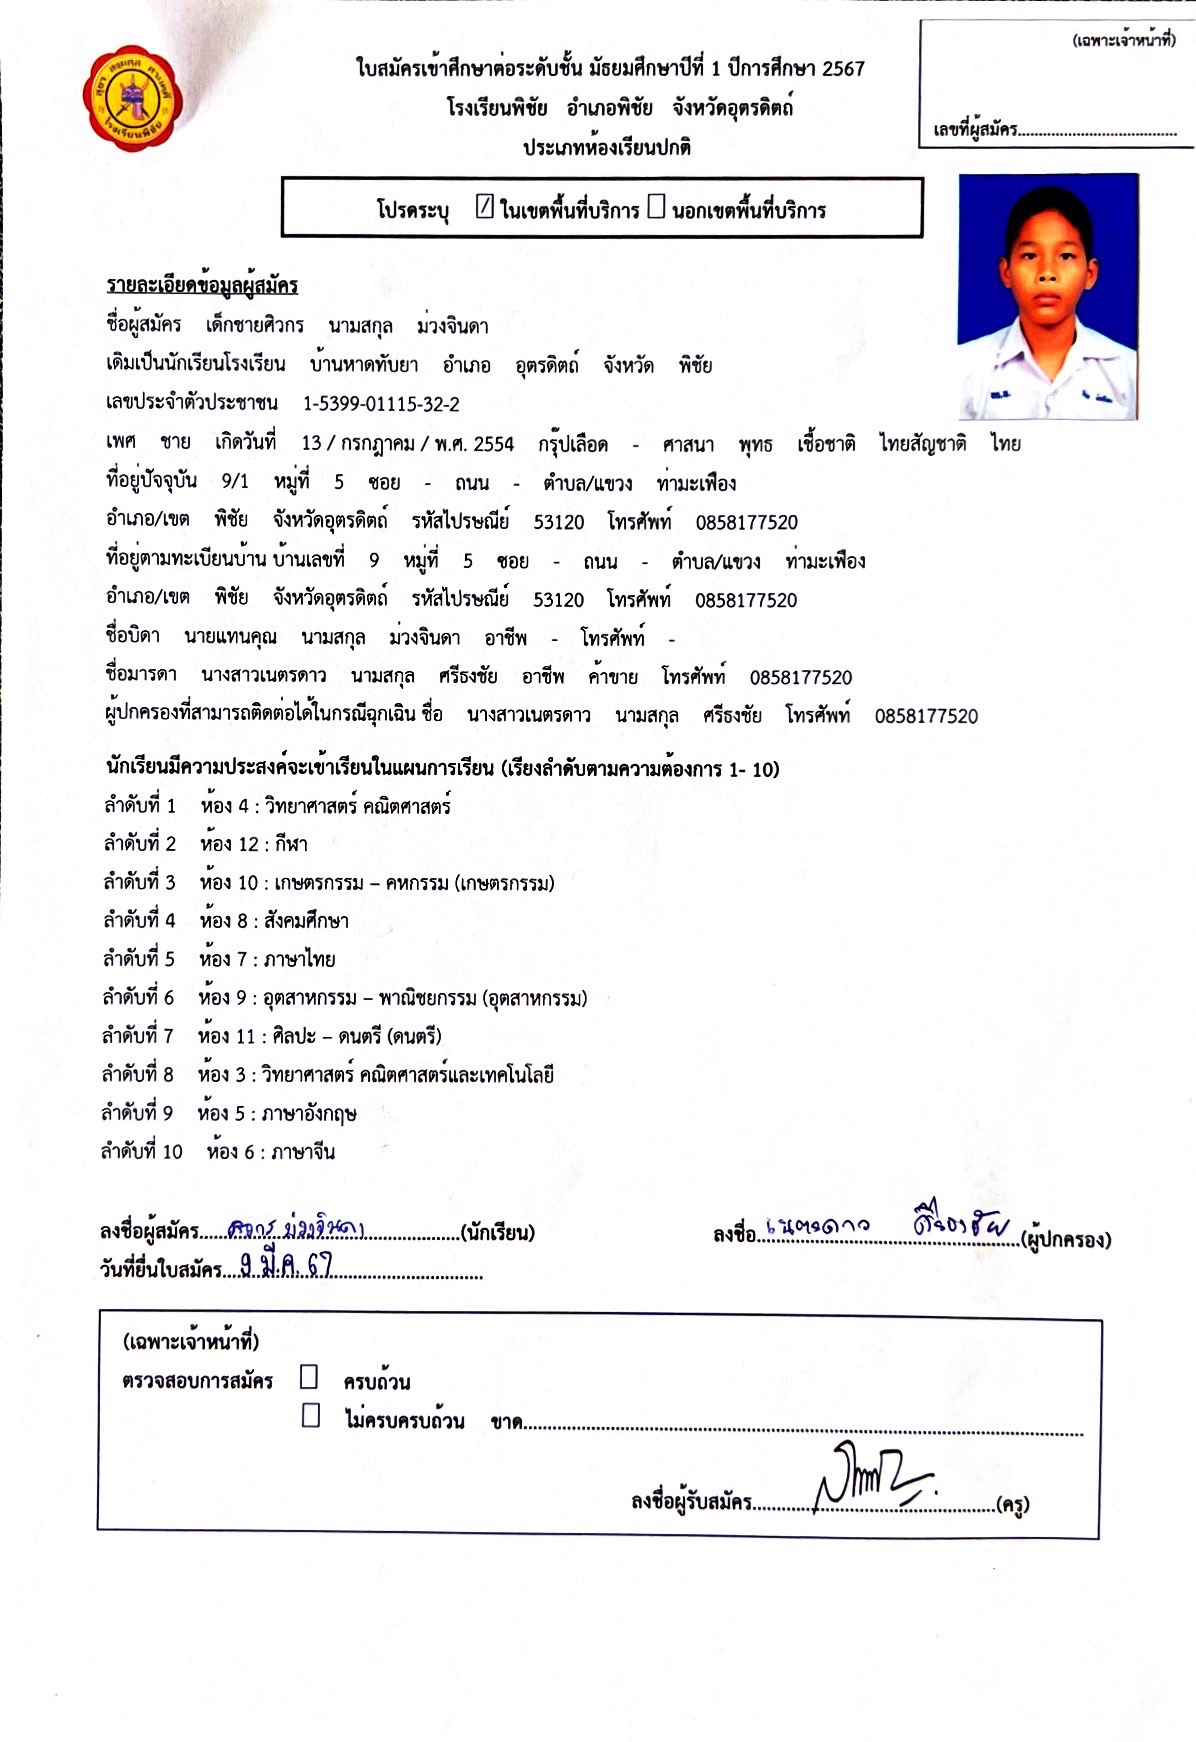 (เฉพาะเจ้าหน้าที่)
เลขที่ผู้สมัคร......................................
ใบสมัครเข้าศึกษาต่อระดับชั้น มัธยมศึกษาปีที่ 1 ปีการศึกษา 2567
โรงเรียนพิชัย อำเภอพิชัย จังหวัดอุตรดิตถ์
ประเภทห้องเรียนปกติ
โรงเรียนพิชัย
โปรดระบุ ☑ ในเขตพื้นที่บริการ ☐ นอกเขตพื้นที่บริการ
รายละเอียดข้อมูลผู้สมัคร
ชื่อผู้สมัคร เด็กชายศิวกร นามสกุล ม่วงจินดา
เดิมเป็นนักเรียนโรงเรียน บ้านหาดทับยา อำเภอ อุตรดิตถ์ จังหวัด พิชัย
เลขประจำตัวประชาชน 1-5399-01115-32-2
เพศ ชาย เกิดวันที่ 13 / กรกฎาคม / พ.ศ. 2554 กรุ๊ปเลือด - ศาสนา พุทธ เชื้อชาติ ไทยสัญชาติ ไทย
ที่อยู่ปัจจุบัน 9/1 หมู่ที่ 5 ซอย - ถนน - ตำบล/แขวง ท่ามะเฟือง
อำเภอ/เขต พิชัย จังหวัดอุตรดิตถ์ รหัสไปรษณีย์ 53120 โทรศัพท์ 0858177520
ที่อยู่ตามทะเบียนบ้าน บ้านเลขที่ 9 หมู่ที่ 5 ซอย - ถนน - ตำบล/แขวง ท่ามะเฟือง
อำเภอ/เขต พิชัย จังหวัดอุตรดิตถ์ รหัสไปรษณีย์ 53120 โทรศัพท์ 0858177520
ชื่อบิดา นายแทนคุณ นามสกุล ม่วงจินดา อาชีพ - โทรศัพท์ -
ชื่อมารดา นางสาวเนตรดาว นามสกุล ศรีธงชัย อาชีพ ค้าขาย โทรศัพท์ 0858177520
ผู้ปกครองที่สามารถติดต่อได้ในกรณีฉุกเฉิน ชื่อ นางสาวเนตรดาว นามสกุล ศรีธงชัย โทรศัพท์ 0858177520
นักเรียนมีความประสงค์จะเข้าเรียนในแผนการเรียน (เรียงลำดับตามความต้องการ 1- 10)
ลำดับที่ 1 ห้อง 4 : วิทยาศาสตร์ คณิตศาสตร์
ลำดับที่ 2 ห้อง 12 : กีฬา
ลำดับที่ 3 ห้อง 10 : เกษตรกรรม – คหกรรม (เกษตรกรรม)
ลำดับที่ 4 ห้อง 8 : สังคมศึกษา
ลำดับที่ 5 ห้อง 7 : ภาษาไทย
ลำดับที่ 6 ห้อง 9 : อุตสาหกรรม – พาณิชยกรรม (อุตสาหกรรม)
ลำดับที่ 7 ห้อง 11 : ศิลปะ – ดนตรี (ดนตรี)
ลำดับที่ 8 ห้อง 3 : วิทยาศาสตร์ คณิตศาสตร์และเทคโนโลยี
ลำดับที่ 9 ห้อง 5 : ภาษาอังกฤษ
ลำดับที่ 10 ห้อง 6 : ภาษาจีน
ลงชื่อผู้สมัคร.....ศิวกร ม่วงจินดา.....(นักเรียน) ลงชื่อ.....เนตรดาว ศรีธงชัย.....(ผู้ปกครอง)
วันที่ยื่นใบสมัคร....9 มี.ค. 67....
(เฉพาะเจ้าหน้าที่)
ตรวจสอบการสมัคร ☐ ครบถ้วน
☐ ไม่ครบครบถ้วน ขาด..........
ลงชื่อผู้รับสมัคร..........(ครู)